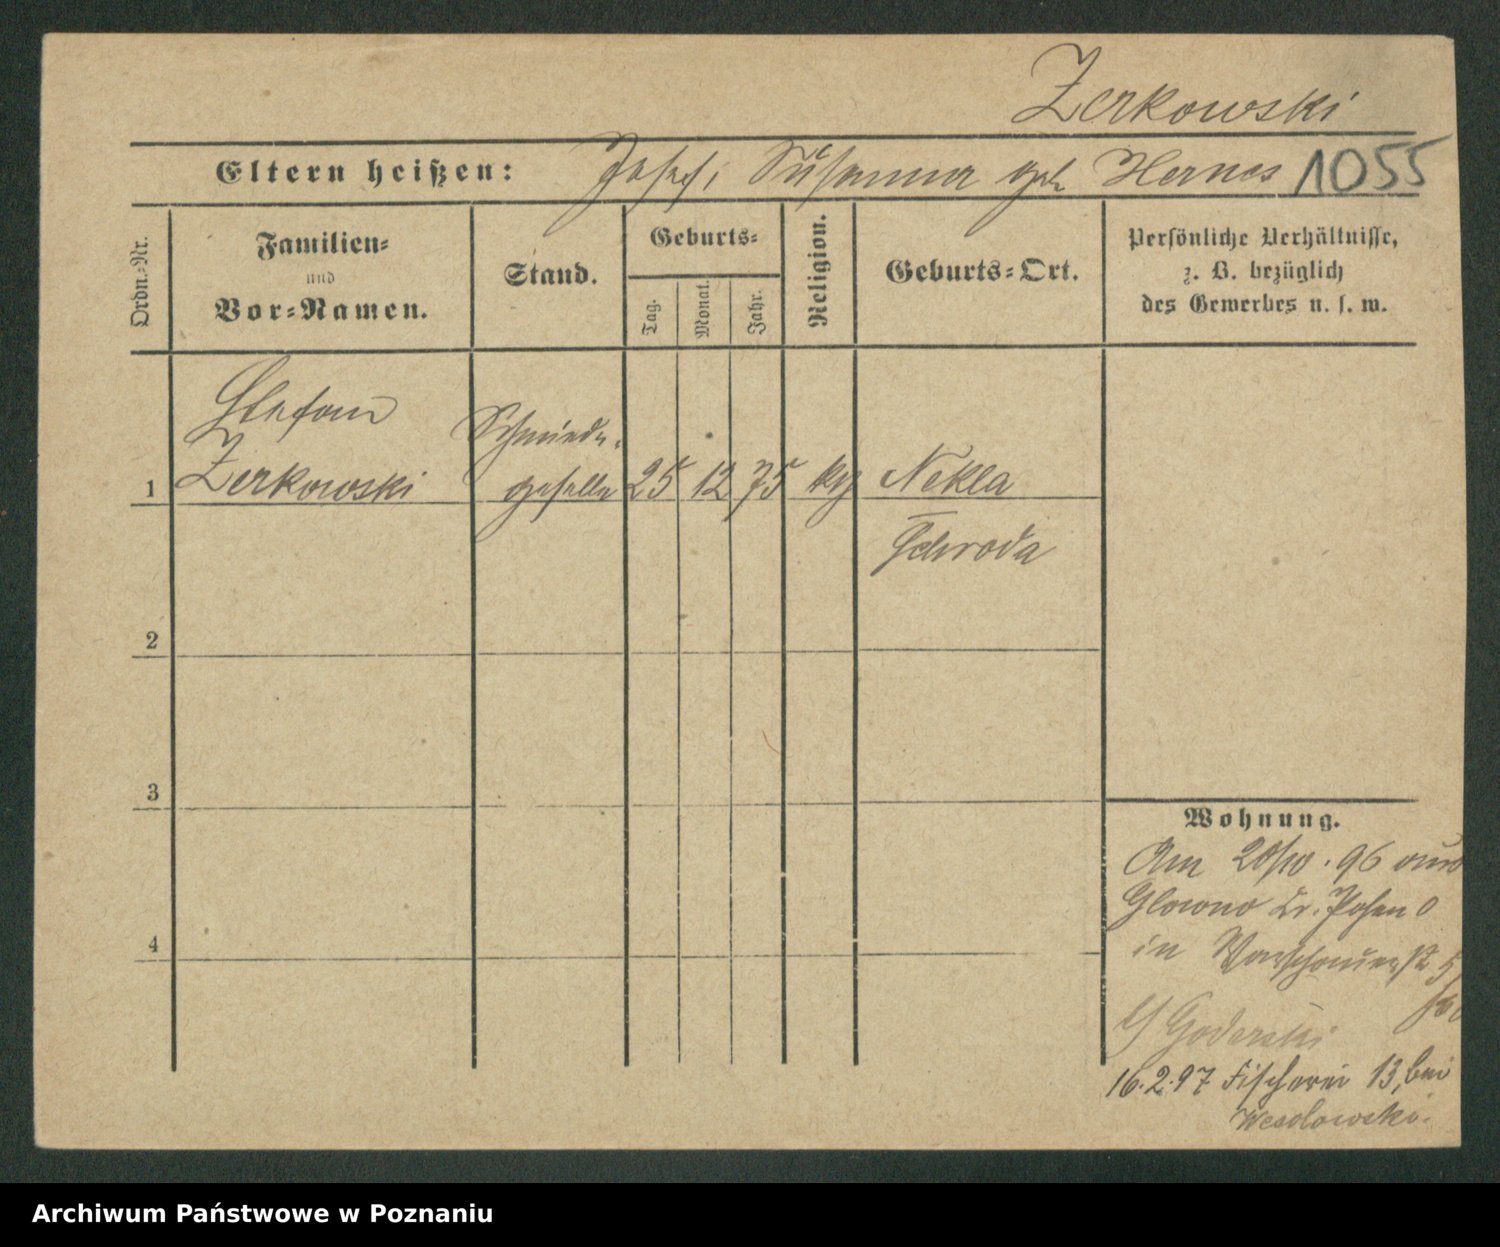 Zerkowski
Eltern heißen: Josef, Susanna geb Hernes 1055
Ordn.-Nr.
Familien-
und
Vor-Namen.
Stand.
Geburts-
Tag.
Monat.
Jahr.
Religion.
Geburts-Ort.
Persönliche Verhältnisse,
z. B. bezüglich
des Gewerbes u. s. w.
Stefan
Zerkowski
Schmiede-
geselle
1
25 12 75
Nekla
Schroda
2
3
4
Wohnung.
Am 20/10. 96 aus
Glowno Kr. Posen O
in Warschauerstr. 5
b/ Goderski
16.2.97 Fischerei 13, bei
Wesolowski.
Archiwum Państwowe w Poznaniu